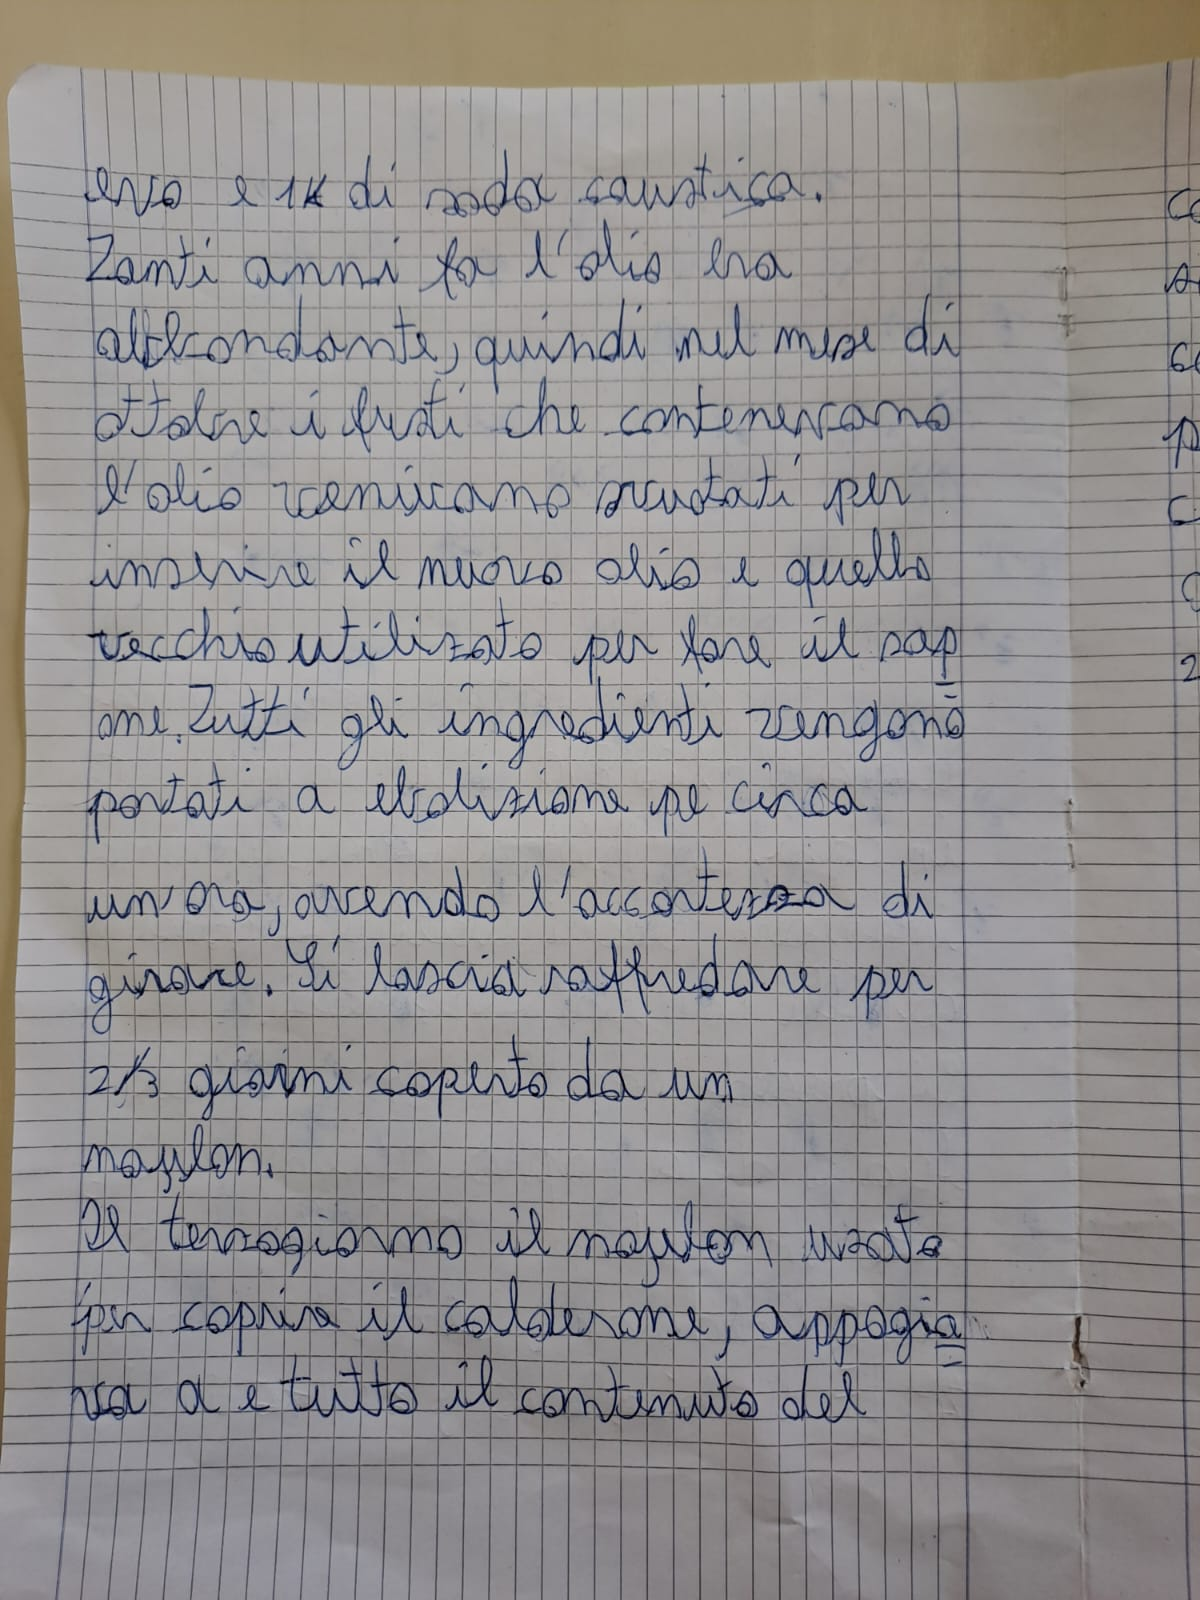 evo e 1K di soda caustica.
Tanti anni fa l'olio era
abbondante, quindi nel mese di
ottobre i fusti che contenevano
l'olio venivano svuotati per
inserire il nuovo olio e quello
vecchio utilizato per fare il sap
one. Tutti gli ingredienti vengono
portati a ebolizione pe circa
un'ora, avendo l'accortezza di
girare. Si lascia raffredare per
2/3 giorni coperto da un
naylon.
Il terzogiorno il naylon usato
per coprire il calderone, appogia
va a e tutto il contenuto del